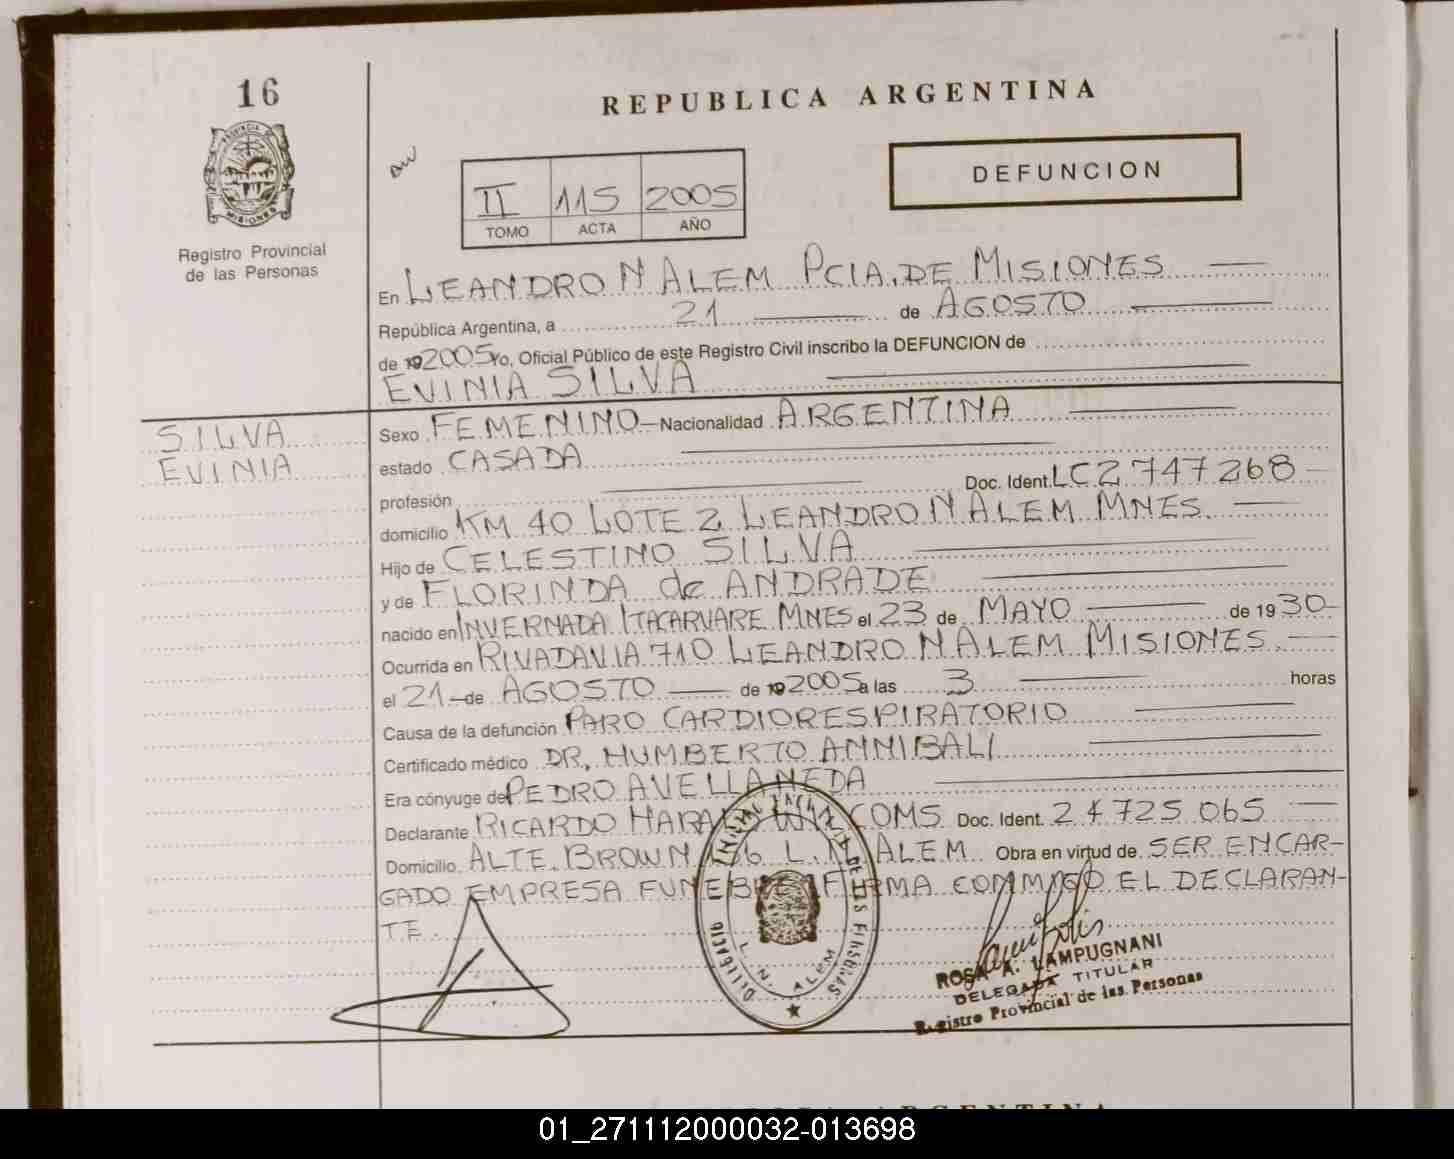 16
REPUBLICA ARGENTINA
DEFUNCION
II 115 2005
TOMO ACTA AÑO
PROVINCIA DE
MISIONES
Registro Provincial
de las Personas
En LEANDRO N ALEM PCIA. DE MISIONES
República Argentina, a 21 de AGOSTO
de 192005 Yo, Oficial Público de este Registro Civil inscribo la DEFUNCION de
EVINIA SILVA
SILVA
EVINIA
Sexo FEMENINO Nacionalidad ARGENTINA
estado CASADA
profesión Doc. Ident. LC 2 747 268
domicilio KM 40 LOTE 2 LEANDRO N ALEM MNES.
Hijo de CELESTINO SILVA
y de FLORINDA de ANDRADE
nacido en INVERNADA ITACARUARE MNES el 23 de MAYO de 1930
Ocurrida en RIVADAVIA 710 LEANDRO N ALEM MISIONES.
el 21 de AGOSTO de 192005 a las 3 horas
Causa de la defunción PARO CARDIORESPIRATORIO
Certificado médico DR. HUMBERTO ANNIBALI
Era cónyuge de PEDRO AVELLANEDA
Declarante RICARDO COMS Doc. Ident. 24 725 065
Domicilio ALTE. BROWN L. N. ALEM Obra en virtud de SER ENCAR-
GADO EMPRESA FUNEBRE FIRMA CONMIGO EL DECLARAN-
TE.
L. N. ALEM
ROSA A. LAMPUGNANI
DELEGADA TITULAR
Registro Provincial de las Personas
01_271112000032-013698